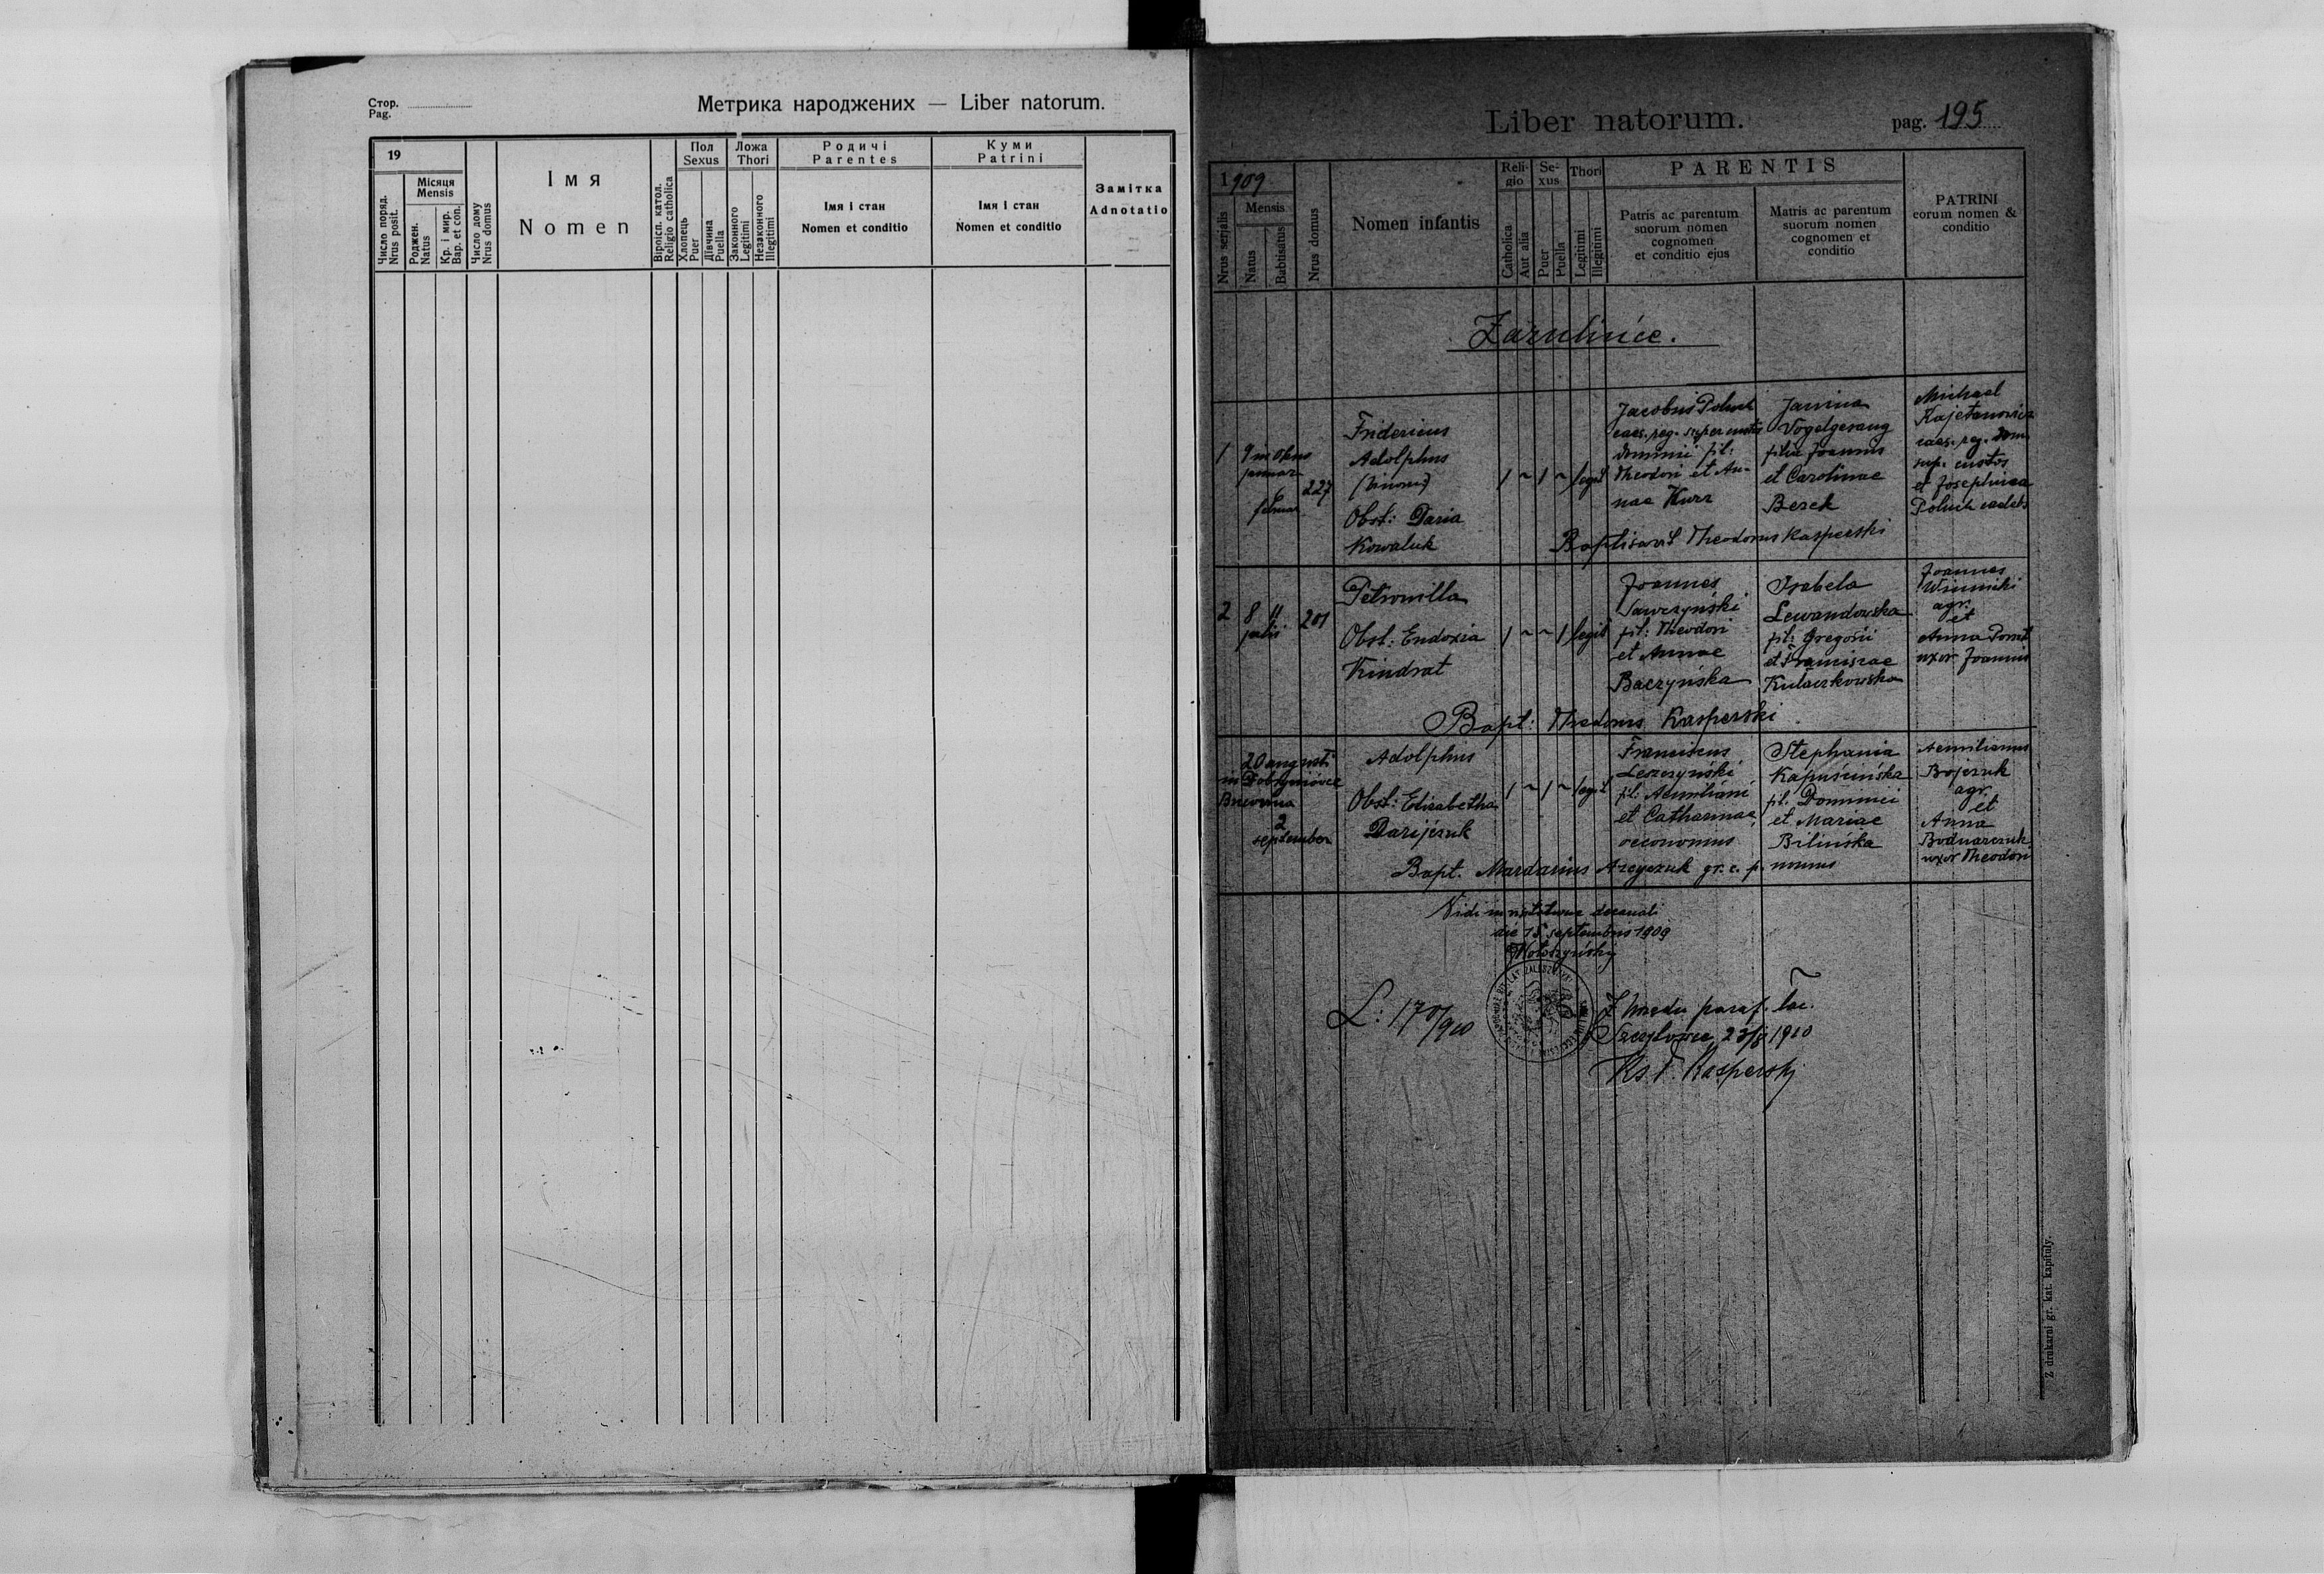 Стор.
Pag.
Метрика народжених — Liber natorum.
19
Число поряд.
Nrus posit.
Місяця
Mensis
Роджен.
Natus
Кр. і мир.
Bap. et con.
Число дому
Nrus domus
Імя
Nomen
Віроісп. катол.
Religio catholica
Пол
Sexus
Хлопець
Puer
Дівчина
Puella
Ложа
Thori
Законного
Legitimi
Незаконного
Illegitimi
Родичі
Parentes
Імя і стан
Nomen et conditio
Куми
Patrini
Імя і стан
Nomen et conditio
Замітка
Adnotatio
Liber natorum.
pag. 195
1909
Nrus serialis
Mensis
Natus
Babtisatus
Nrus domus
Nomen infantis
Reli-
gio
Catholica
Aut alia
Se-
xus
Puer
Puella
Thori
Legitimi
Illegitimi
PARENTIS
Patris ac parentum
suorum nomen
cognomen
et conditio ejus
Matris ac parentum
suorum nomen
cognomen et
conditio
PATRINI
eorum nomen &
conditio
1
227
Fridericus
Adolphus
Obst: Daria
Kowaluk
1 ~ 1 ~ legit
Jacobus
caes. reg.
dominii fil:
Theodori et An-
nae Kurz
Janina
Vogelgesang
filia Joannis
et Carolinae
Berek
Michael
Kajetanowicz
caes. reg. dom.
sup. custos
et Josephina
Baptisavit Theodorus Kasperski
2
8 11
julii
201
Petronilla
Obst: Eudoxia
Kindrat
1 ~ ~ 1 legit
Joannes
Sawczyński
fil: Theodori
et Annae
Baczyńska
Isabela
Lewandowska
fil: Gregorii
et Franciscae
Kulaczkowska
Joannes
Winnicki
agr.
et
Anna
uxor Joannis
Bapt: Theodorus Kasperski
20 augusti
in
2
september
Adolphus
Obst: Elisabetha
Darijczuk
1 ~ 1 ~ legit
Franciscus
Leszczyński
fil: Aemiliani
et Catharinae,
oeconomus
Stephania
Kapuścińska
fil. Dominici
et Mariae
Bilińska
Aemilianus
Bojczuk
agr.
et
Anna
Bodnarczuk
uxor Theodori
Bapt. Mardarius gr. c. p.
Vidi in visitatione decanali
die 15 septembris 1909
L: 170/910
Z urzedu paraf. łac.
1910
Ks T. Kasperski
Z drukarni gr. kat. kapituły.